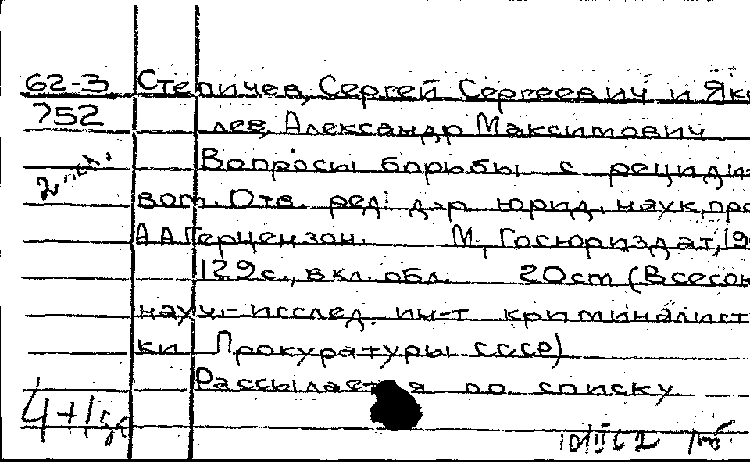 62-3 Степичев, Сергей Сергеевич и Яко
752 лев, Александр Максимович
Вопросы борьбы с рециди-
вом. Отв. ред: д-р юрид. наук, про
А.А.Герцензон. М., Госюриздат, 19
129 с., вкл. обл. 20 cm (Всесою
науч.-исслед. ин-т криминалист
ки Прокуратуры СССР)
Рассылается по списку
4+1
10/II 62